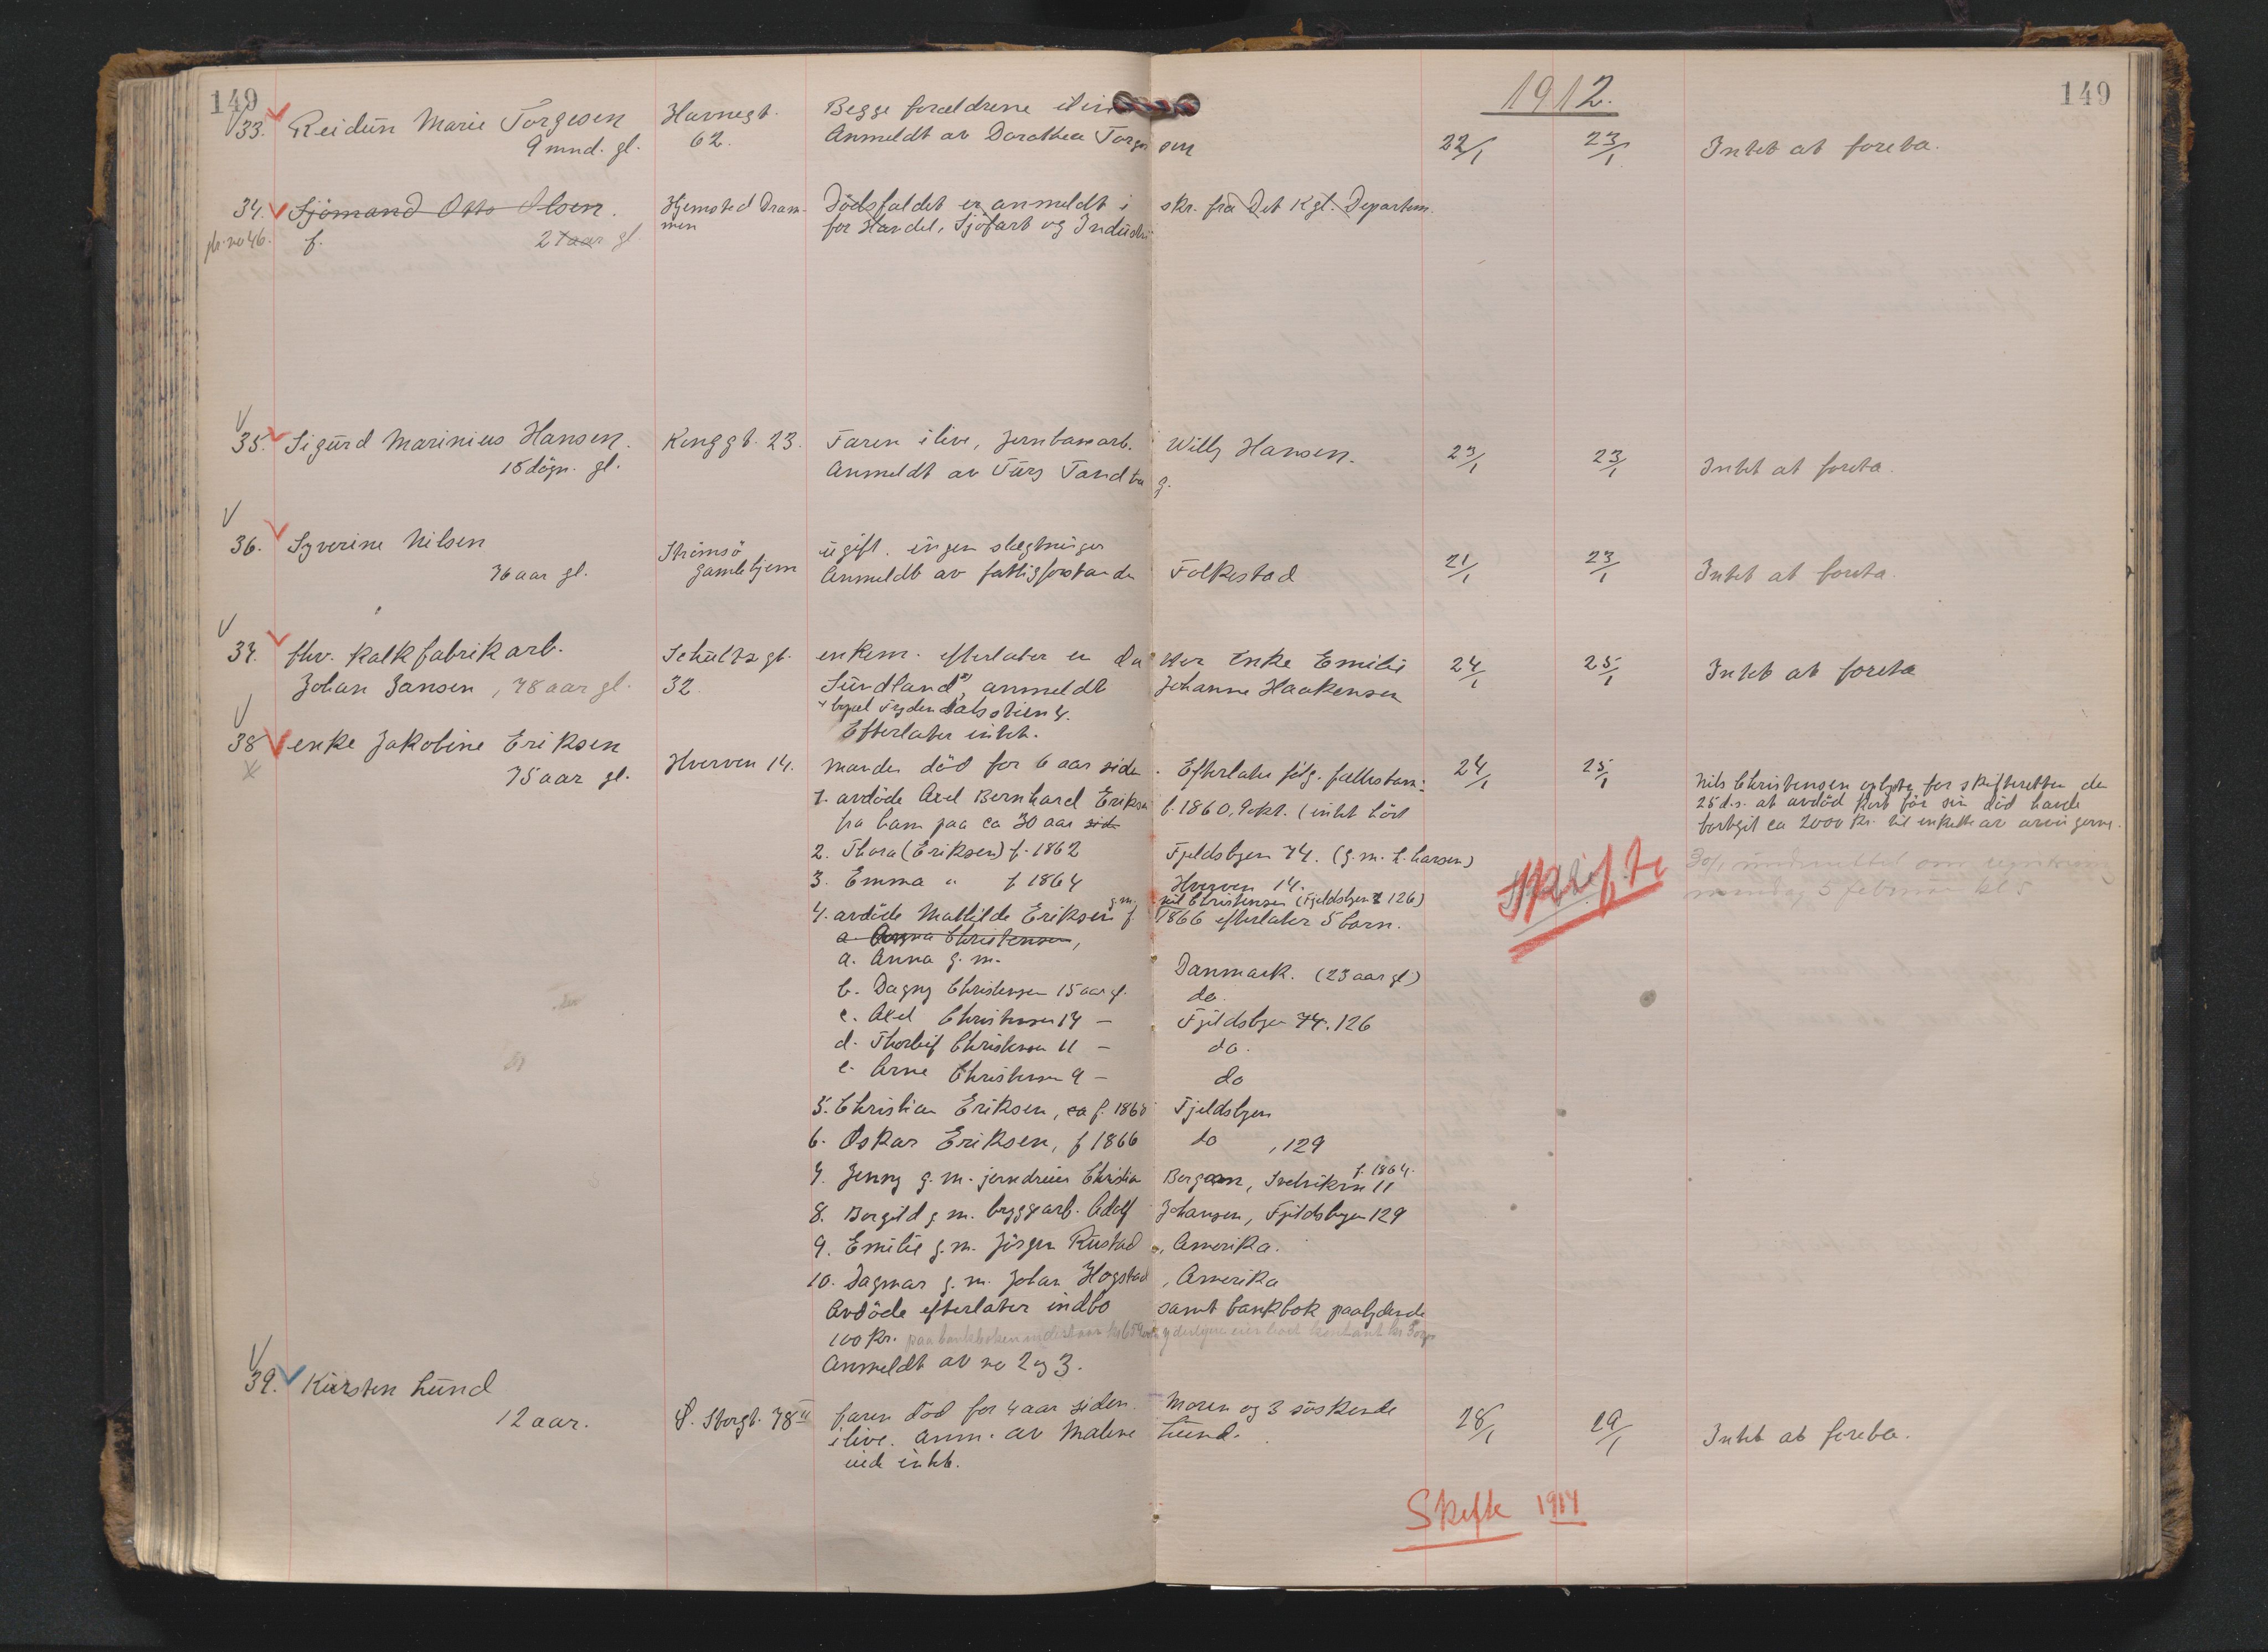 149
1912.
149
33. Reidun Marie Torgesen Havnegt. Begge forældrene
9 mnd. gl. 62. Anmeldt av Dorothea Torge sen 22/1 23/1 Intet at foreta.
34. Sjömand Otto Olsen. Hjemsted Dram- Dödsfaldet er anmeldt i skr. fra Det Kgl. Departem.
no 46. f. 21 aar gl men for Handel, Sjöfart og Industri
35. Sigurd Marinius Hansen. Konggt. 23. Faren ilive, jernbanearb. Willy Hansen. 23/1 23/1 Intet at foreta.
18 døgn. gl. Anmeldt av Tandbe g.
36. Syverine Nilsen Strömsö ugift. ingen slegtninger
76 aar gl. gamlehjem Anmeldt av fattigforstander Folkestad 21/1 23/1 Intet at foreta.
37. fhv. Kalkfabrikarb. Schultzgt. enkem. efterlater en da tter Enke Emilie 24/1 25/1 Intet at foreta
Johan Jansen, 78 aar gl. 32. Sundland x), anmeldt Johanne Haakensen
Efterlater intet.
38 enke Jakobine Eriksen
75 aar gl. Hverven 14. Manden död for 6 aar siden. Efterlater fölg. fællesbarn: 24/1 25/1
Nils Christensen oplyste for skifteretten den
25 d.s. at avdöd kort för sin död havde
bortgit ca 2000 kr. til enkelte av arvingerne.
1. avdöde Axel Bernhard Eriksen f. 1860, (intet hört
fra ham paa ca 30 aar
2. Thora (Eriksen) f. 1862 Fjeldsbyen 74. (g.m. L. Larsen)
3. Emma " f 1864 Hverven 14.
Skifte
g.m. Nils Christensen (Fjeldsbyen 126)
4. avdöde Mathilde Eriksen f 1866 efterlater 5 barn.
a. Anna Christensen,
a. Anna g. m. Danmark. (23 aar gl)
b. Dagny Christensen 15 aar gl. do.
c. Axel Christensen 14 — Fjeldsbyen 74. 126
d. Thorleif Christensen 11 — do.
e. Arne Christensen 9 — do
5. Christian Eriksen, ca f. 1868 Fjeldsbyen
6. Oskar Eriksen, f 1866 do , 129
f. 1864.
7. Jenny g. m. jerndreier Christian Bergean, 11
8. Borgild g. m. byggearb. Adolf Johansen, Fjeldsbyen 129
9. Emilie g. m. Jörgen Rustad, Amerika.
10. Dagmar g. m. Johan Hogstad, Amerika
Avdöde efterlater indbo samt bankbok paalydende
100 kr.
Anmeldt av no 2 og 3.
39. Kirsten Lund
12 aar. Storgt. 78 II faren död for 4 aar siden. Moren og 3 söskende 28/1 29/1 Intet at foreta.
ilive. Anm. av Malene Lund.
intet.
Skifte 1914